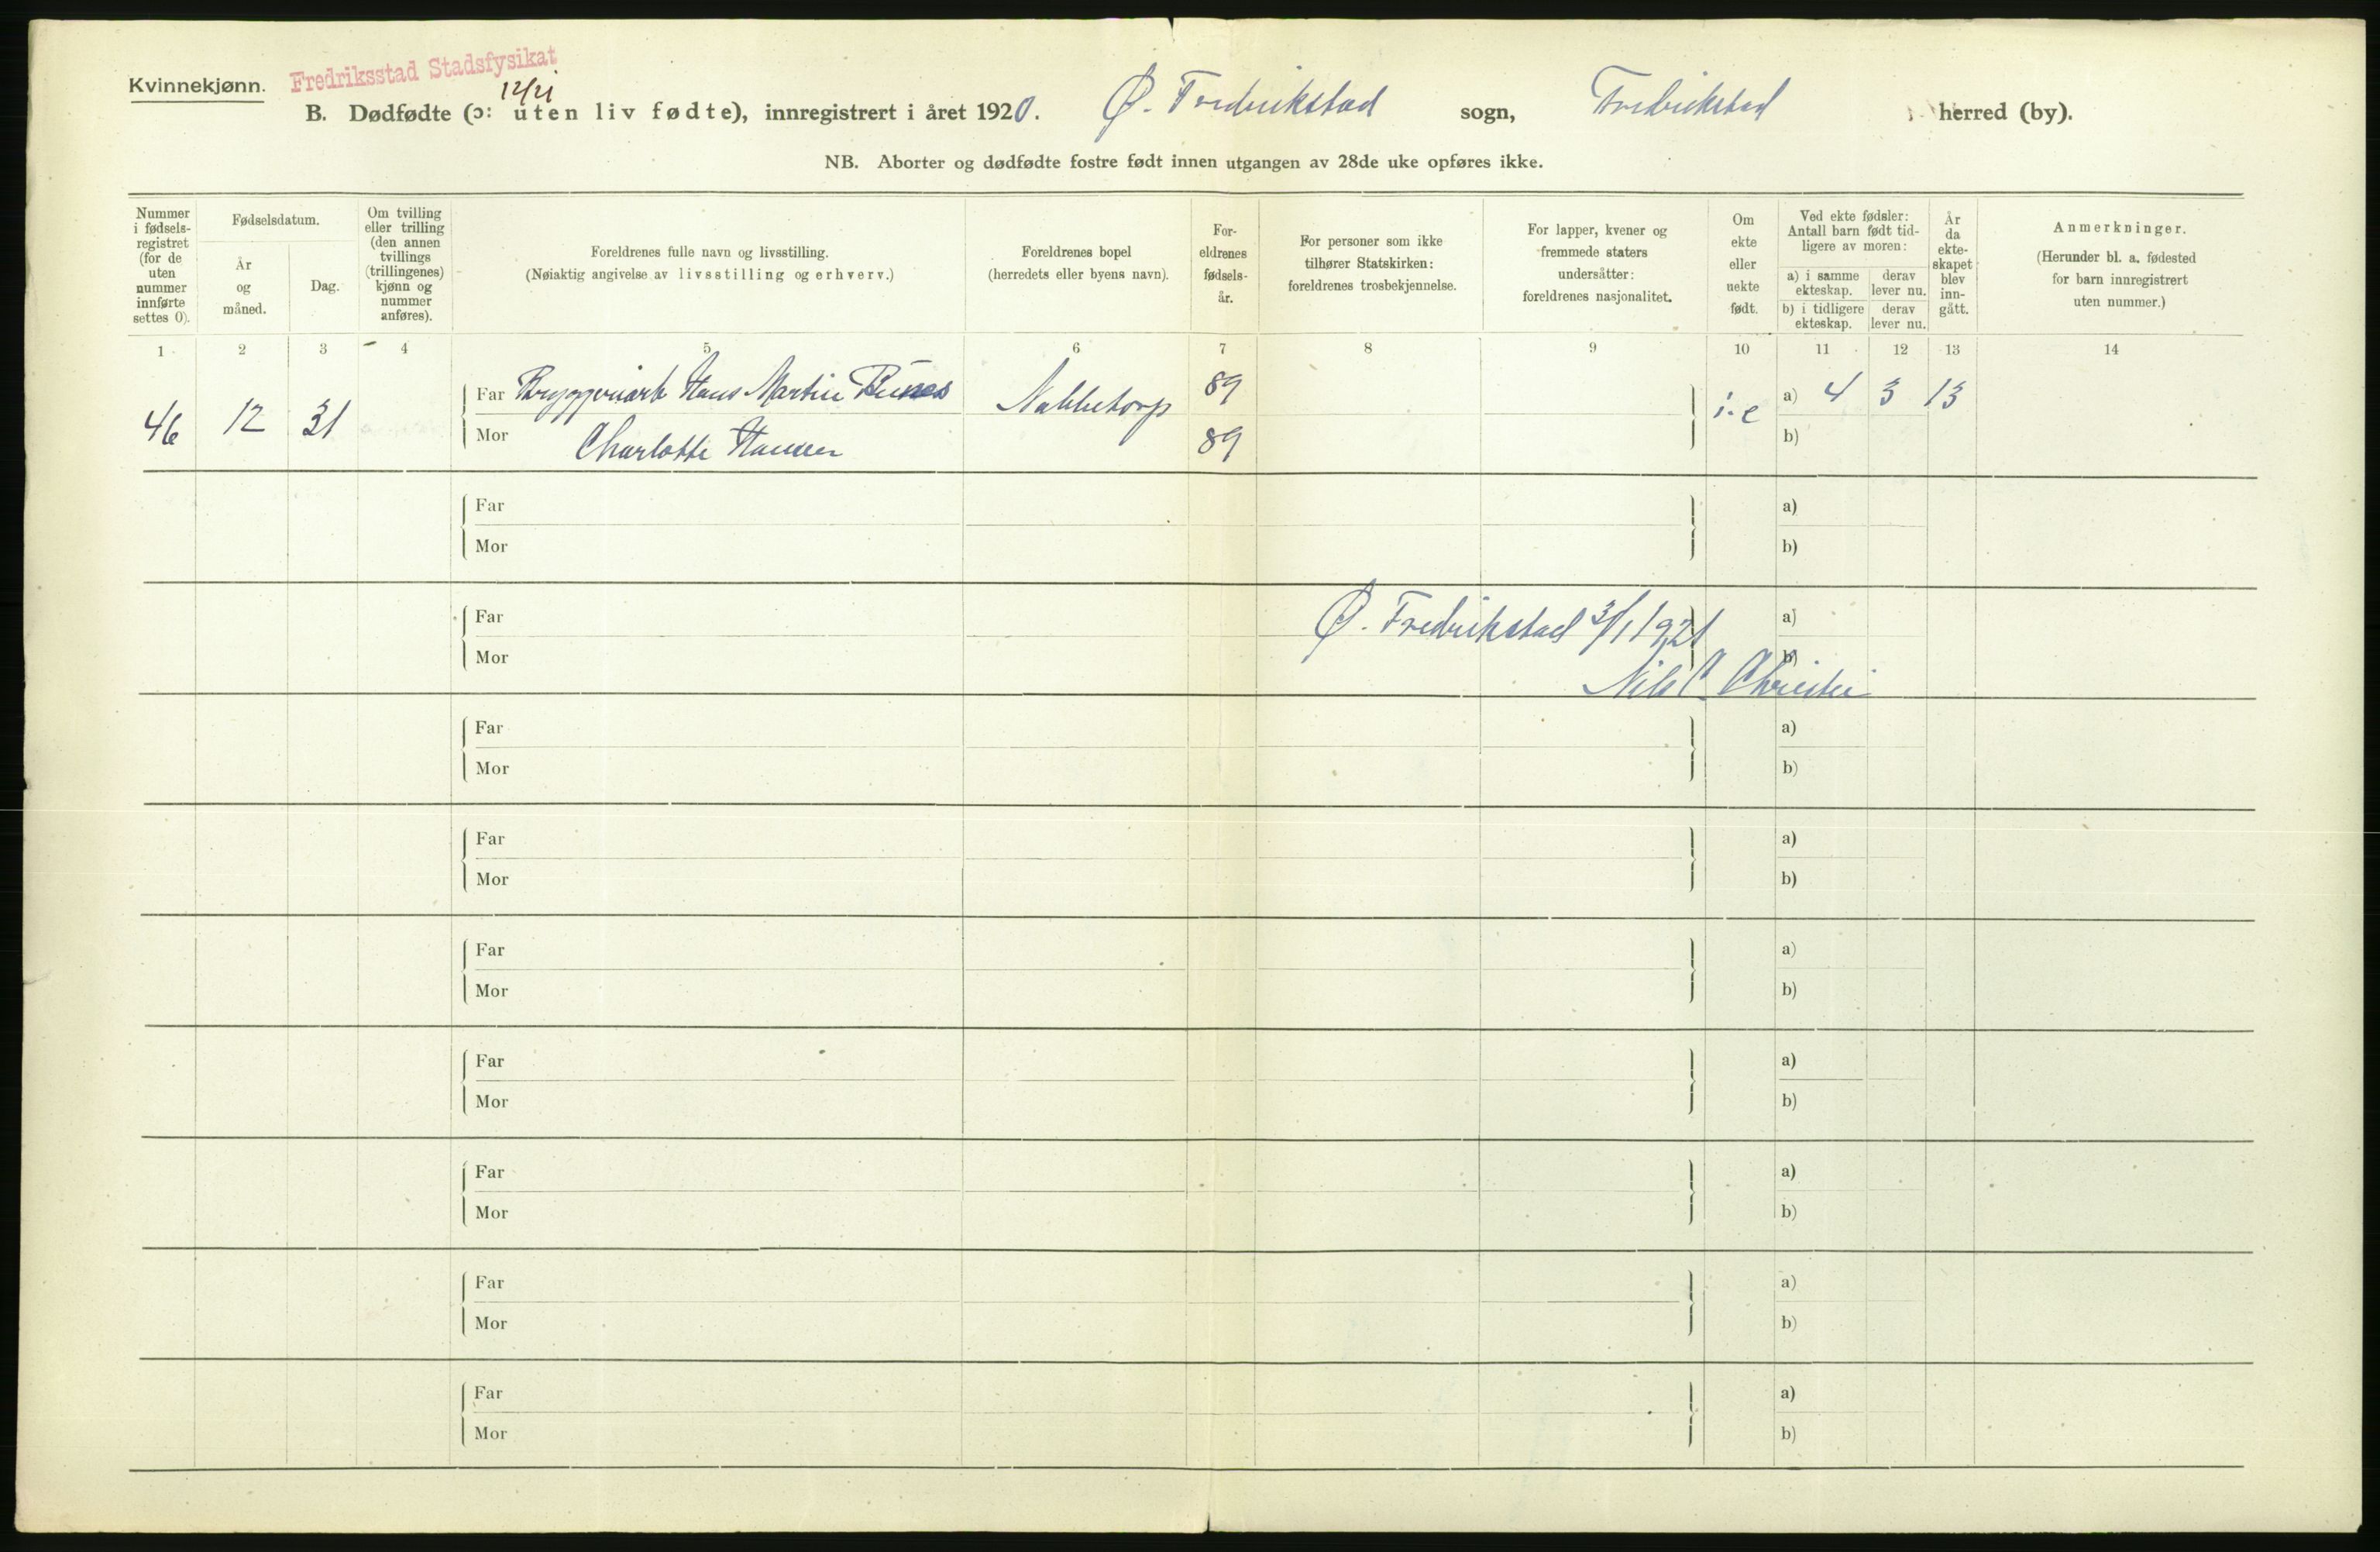 Kvinnekjønn.
Fredriksstad Stadsfysikat
12/21
B. Dødfødte (ɔ: uten liv fødte), innregistrert i året 1920. Ø. Fredrikstad sogn, Fredrikstad herred (by).
NB. Aborter og dødfødte fostre født innen utgangen av 28de uke opføres ikke.
Nummer
i fødsels-
registret
(for de
uten
nummer
innførte
settes 0).
Fødselsdatum.
År
og
måned.
Dag.
Om tvilling
eller trilling
(den annen
tvillings
(trillingenes)
kjønn og
nummer
anføres).
Foreldrenes fulle navn og livsstilling.
(Nøiaktig angivelse av livsstilling og erhverv.)
Foreldrenes bopel
(herredets eller byens navn).
For-
eldrenes
fødsels-
år.
For personer som ikke
tilhører Statskirken:
foreldrenes trosbekjennelse.
For lapper, kvener og
fremmede staters
undersåtter:
foreldrenes nasjonalitet.
Om
ekte
eller
uekte
født.
Ved ekte fødsler:
Antall barn født tid-
ligere av moren:
a) i samme
ekteskap.
derav
lever nu.
b) i tidligere
ekteskap.
derav
lever nu.
År
da
ekte-
skapet
blev
inn-
gått.
Anmerkninger.
(Herunder bl. a. fødested
for barn innregistrert
uten nummer.)
1 2 3 4 5 6 7 8 9 10 11 12 13 14
46 12 31 Far Bryggeriarb Hans Martin Nabbetorp 89 i. e a) 4 3 13
Mor Charlotte Hansen 89 b)
Far a)
Mor b)
Far Ø. Fredrikstad 3/1 1921 a)
Mor b)
Nils C Christie
Far a)
Mor b)
Far a)
Mor b)
Far a)
Mor b)
Far a)
Mor b)
Far a)
Mor b)
Far a)
Mor b)
Far a)
Mor b)